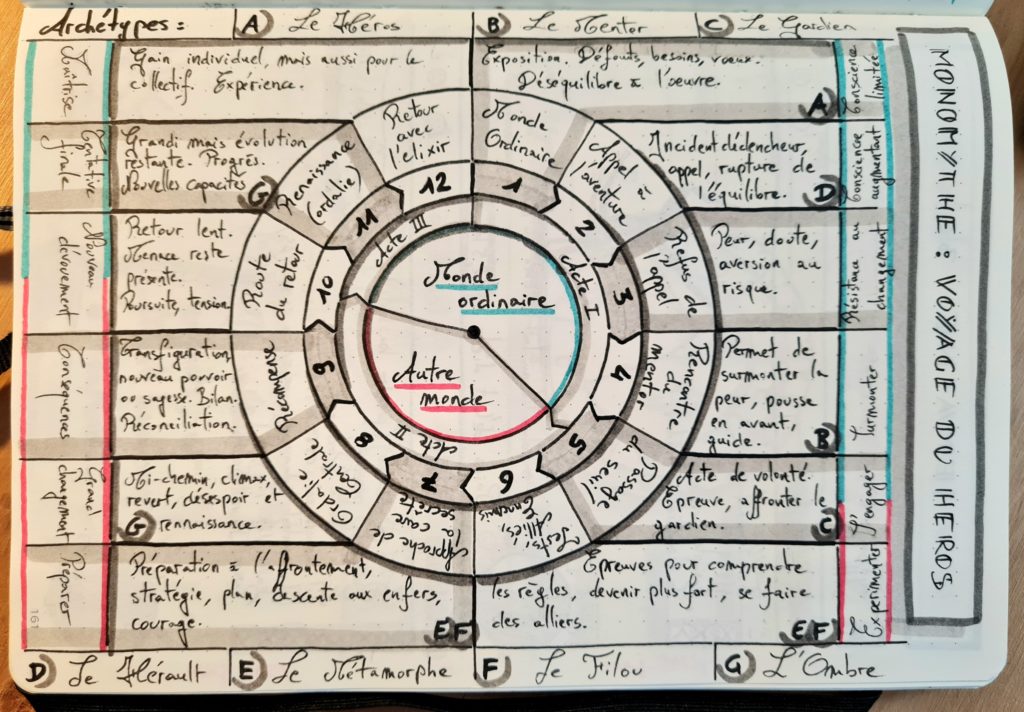 Archétypes :
A Le Héros
B Le Mentor
C Le Gardien
MONOMYTHE : VOYAGE DU HEROS
Maîtrise
Gain individuel, mais aussi pour le
collectif. Expérience.
Exposition. Défauts, besoins, vœux.
Déséquilibre à l'œuvre.
A
Conscience
limitée
Tentative
finale
Grandi mais évolution
restante. Progrès.
Nouvelles capacités
G
Incident déclencheur,
appel, rupture de
l'équilibre.
D
Conscience
augmentant
Nouveau
dévouement
Retour lent.
Menace reste
présente.
Poursuite, tension.
Peur, doute,
aversion au
risque.
Résistance au
changement
Conséquences
Transfiguration,
nouveau pouvoir
ou sagesse. Bilan.
Réconciliation.
Permet de
surmonter la
peur, pousse
en avant,
guide.
B
Surmonter
Grand
changement
Mi-chemin, climax,
revert, désespoir et
rennaissance.
G
Acte de volonté.
Epreuve, affronter le
gardien.
C
S'engager
Préparer
Préparation à l'affrontement,
stratégie, plan, descente aux enfers,
courage.
E F
Epreuves pour comprendre
les règles, devenir plus fort, se faire
des alliers.
E F
Experimenter
Monde
Ordinaire
1
Appel à
l'aventure
2
Refus de
l'appel
3
Rencontre
du
mentor
4
Passage
du seuil
5
Tests,
Alliés,
Ennemis
6
Approche de
la cave
secrète
7
Ordalie
Centrale
8
Récompense
9
Route
du retour
10
Renaissance
(ordalie)
11
Retour
avec
l'elixir
12
Acte I
Acte II
Acte III
Monde
ordinaire
Autre
monde
161
D Le Hérault
E Le Métamorphe
F Le Filou
G L'Ombre